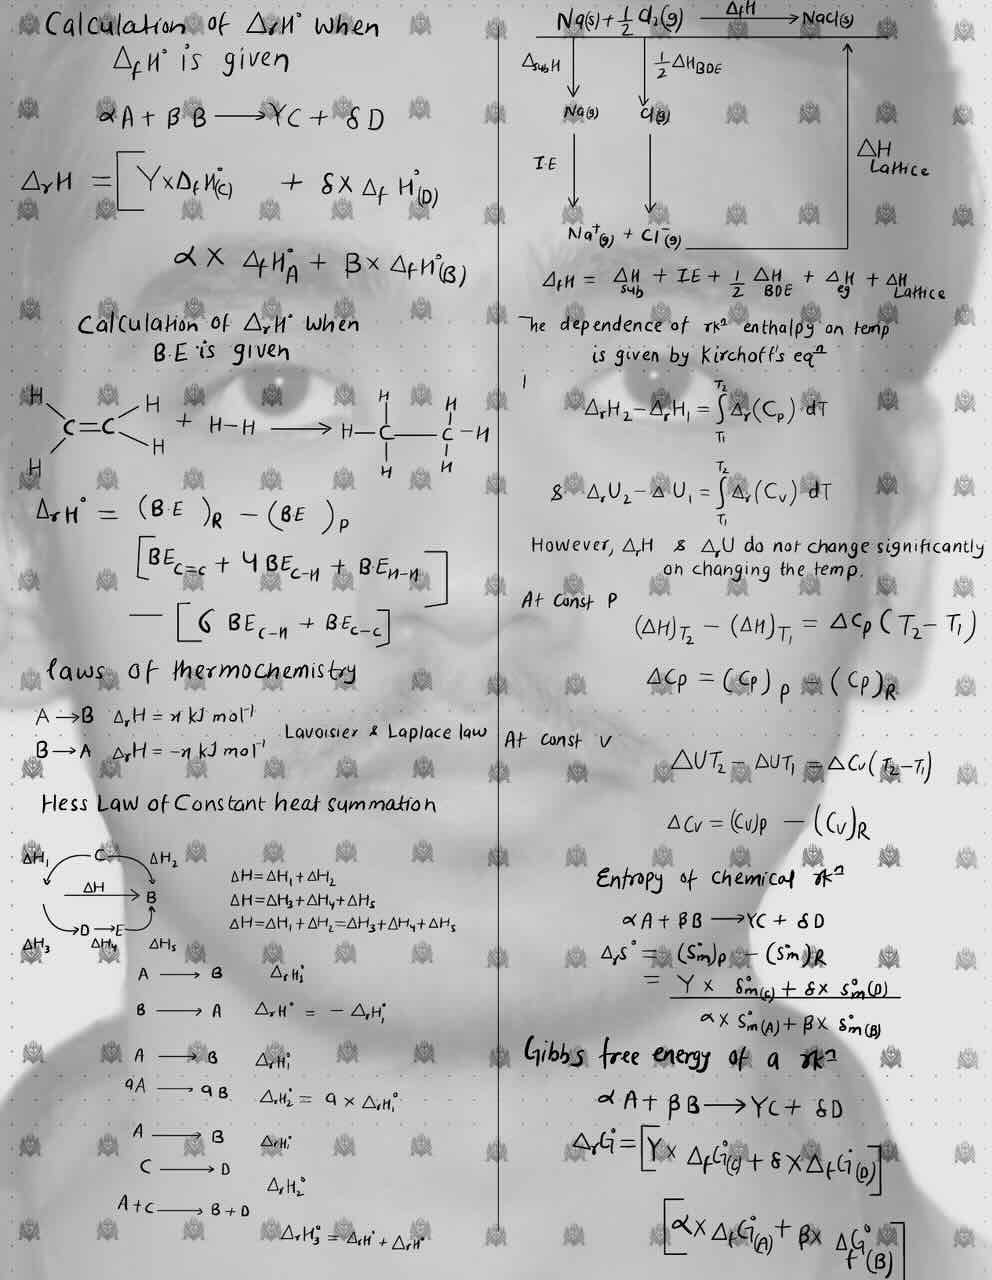 Calculation of ΔrH° when
ΔfH° is given
αA + βB ⟶ YC + δD
ΔrH = [Y×ΔfH°(C) + δ× Δf H°(D)
α× ΔfH°A + β× ΔfH°(B)]
Calculation of ΔrH° when
B.E is given
H H
C=C + H–H ⟶ H–C–C–H
H H H H H H
ΔrH° = (B.E )R – (BE )P
[BEC=C + 4 BEC–H + B.EH–H]
– [6 BEC–H + BEC–C]
laws of thermochemistry
A → B ΔrH = x kJ mol⁻¹
B → A ΔrH = –x kJ mol⁻¹
Lavoisier & Laplace law
Hess Law of Constant heat summation
ΔH₁ C ΔH₂
ΔH B
D → E
ΔH₃ ΔH₄ ΔH₅
ΔH=ΔH₁+ΔH₂
ΔH=ΔH₃+ΔH₄+ΔH₅
ΔH=ΔH₁+ΔH₂=ΔH₃+ΔH₄+ΔH₅
A ⟶ B ΔrH₁°
B ⟶ A ΔrH° = – ΔrH₁°
A ⟶ B ΔrH₁°
9A ⟶ 9B ΔrH₂° = 9 × ΔrH₁°
A ⟶ B ΔrH₁°
C ⟶ D ΔrH₂°
A+C ⟶ B+D
ΔrH₃° = ΔrH° + ΔrH°
Na(s) + ½ Cl₂(g) ΔfH ⟶ NaCl(s)
ΔsubH ½ ΔHBDE
Na(g) Cl(g)
I.E
ΔH Lattice
Na⁺(g) + Cl⁻(g)
ΔfH = ΔH sub + IE + ½ ΔH BDE + ΔH eg + ΔH Lattice
The dependence of rxⁿ enthalpy on temp
is given by Kirchoff's eqⁿ
ΔrH₂ – ΔrH₁ = ∫T₁T₂ Δr(Cp) dT
& ΔrU₂ – Δ U₁ = ∫T₁T₂ Δr(Cv) dT
However, ΔrH & ΔrU do not change significantly
on changing the temp.
At const P
(ΔH)T₂ – (ΔH)T₁ = ΔCp(T₂–T₁)
ΔCp = (Cp)P – (Cp)R
At const V
ΔUT₂ – ΔUT₁ = ΔCv(T₂–T₁)
ΔCv = (Cv)P – (Cv)R
Entropy of chemical rxⁿ
αA + βB ⟶ YC + δD
ΔrS° = (S°m)P – (S°m)R
= Y × S°m(C) + δ× S°m(D)
α× S°m(A) + β× S°m(B)
Gibbs free energy of a rxⁿ
αA + βB ⟶ YC + δD
ΔrG° = [Y× ΔfG°(C) + δ×ΔfG°(D)]
[α× ΔfG°(A) + β× ΔfG°(B)]